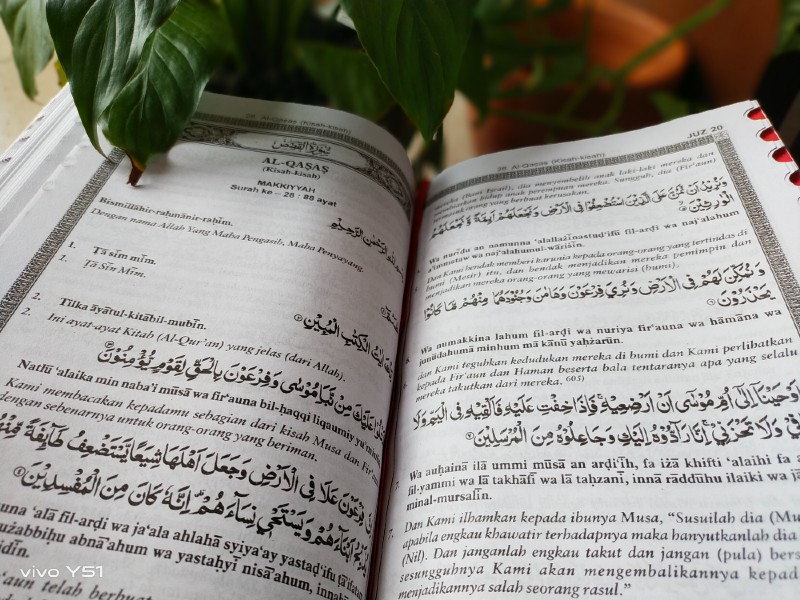 28. Al-Qasas (Kisah-kisah)
سُورَةُ الْقَصَصِ
AL-QAṢAṢ
(Kisah-kisah)
MAKKIYYAH
Surah ke – 28 : 88 ayat
بِسْمِ اللهِ الرَّحْمٰنِ الرَّحِيْمِ
Bismillāhir-raḥmānir-raḥīm.
Dengan nama Allah Yang Maha Pengasih, Maha Penyayang.
1. Ṭā sīm mīm.
1. Ṭā Sīn Mīm.
الْكِتٰبِ الْمُبِيْنِ
2. Tilka āyātul-kitābil-mubīn.
2. Ini ayat-ayat Kitab (Al-Qur'an) yang jelas (dari Allah).
عَلَيْكَ مِنْ نَّبَاِ مُوْسٰى وَفِرْعَوْنَ بِالْحَقِّ لِقَوْمٍ يُّؤْمِنُوْنَ
Natlū 'alaika min naba'i mūsā wa fir'auna bil-ḥaqqi liqaumiy yu'minūn
Kami membacakan kepadamu sebagian dari kisah Musa dan Fir'aun
dengan sebenarnya untuk orang-orang yang beriman.
فِرْعَوْنَ عَلَا فِى الْاَرْضِ وَجَعَلَ اَهْلَهَا شِيَعًا يَّسْتَضْعِفُ طَاۤىِٕفَةً مِّنْهُمْ
اَبْنَاۤءَهُمْ وَيَسْتَحْيٖ نِسَاۤءَهُمْ اِنَّهٗ كَانَ مِنَ الْمُفْسِدِيْنَ
'alā fil-arḍi wa ja'ala ahlahā syiya'ay yastaḍ'ifu
abnā'ahum wa yastaḥyī nisā'ahum,
telah berbuat
JUZ 20
28. Al-Qasas (Kisah-kisah)
mereka (Bani Israil), dia menyembelih anak laki-laki mereka dan
membiarkan hidup anak perempuan mereka. Sungguh, dia (Fir'aun)
termasuk orang yang berbuat kerusakan.
وَنُرِيْدُ اَنْ نَّمُنَّ عَلَى الَّذِيْنَ اسْتُضْعِفُوْا فِى الْاَرْضِ وَنَجْعَلَهُمْ اَىِٕمَّةً وَّنَجْعَلَهُمُ
الْوٰرِثِيْنَ
Wa nurīdu an namunna 'alallażīnastuḍ'ifū fil-arḍi wa naj'alahum
a'immataw wa naj'alahumul-wāriṡīn.
Dan Kami hendak memberi karunia kepada orang-orang yang tertindas di
bumi (Mesir) itu, dan hendak menjadikan mereka pemimpin dan
menjadikan mereka orang-orang yang mewarisi (bumi).
وَنُمَكِّنَ لَهُمْ فِى الْاَرْضِ وَنُرِيَ فِرْعَوْنَ وَهَامٰنَ وَجُنُوْدَهُمَا مِنْهُمْ مَّا كَانُوْا
يَحْذَرُوْنَ
Wa numakkina lahum fil-arḍi wa nuriya fir'auna wa hāmāna wa
junūdahumā minhum mā kānū yaḥżarūn.
Dan Kami teguhkan kedudukan mereka di bumi dan Kami perlihatkan
kepada Fir'aun dan Haman beserta bala tentaranya apa yang selalu
mereka takutkan dari mereka. 605)
وَاَوْحَيْنَآ اِلٰٓى اُمِّ مُوْسٰٓى اَنْ اَرْضِعِيْهِ فَاِذَا خِفْتِ عَلَيْهِ فَاَلْقِيْهِ فِى الْيَمِّ وَلَا
وَلَا تَحْزَنِيْ اِنَّا رَاۤدُّوْهُ اِلَيْكِ وَجَاعِلُوْهُ مِنَ الْمُرْسَلِيْنَ
Wa auḥainā ilā ummi mūsā an arḍi'īh, fa iżā khifti 'alaihi fa
fil-yammi wa lā takhāfī wa lā taḥzanī, innā rāddūhu ilaiki wa
minal-mursalīn.
7. Dan Kami ilhamkan kepada ibunya Musa, “Susuilah dia (Mu
apabila engkau khawatir terhadapnya maka hanyutkanlah dia
(Nil). Dan janganlah engkau takut dan jangan (pula) bers
sesungguhnya Kami akan mengembalikannya kepad
menjadikannya salah seorang rasul.”
vivo Y51